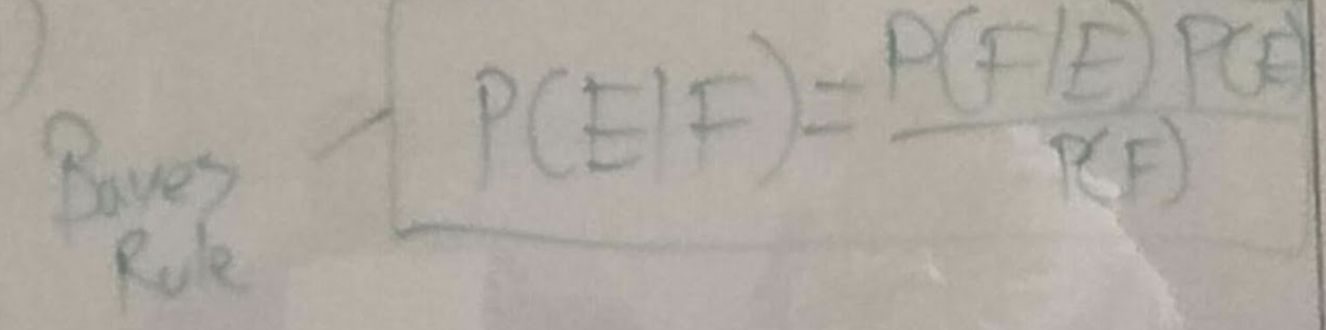 Bayes
Rule
P(E|F) = P(F|E) P(E) / P(F)